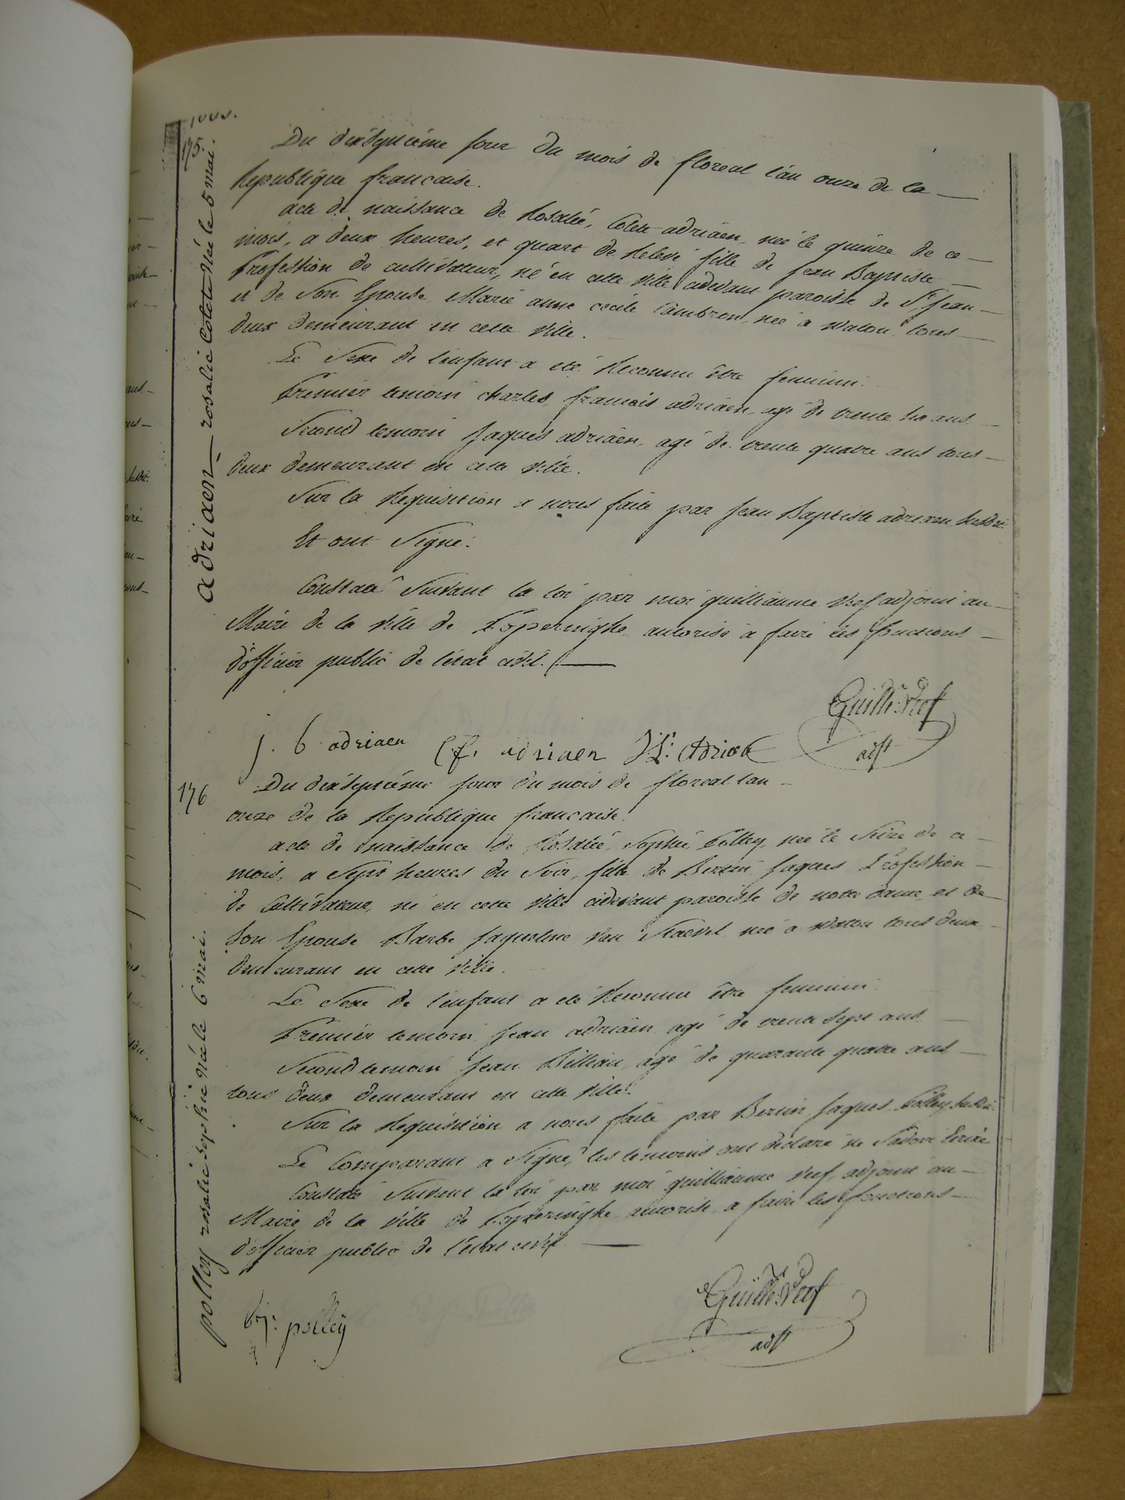 175.
adriaen rosalie Colete Née le 5 mai.
Du dixseptieme jour du mois de floreal l'an onze de la
Republique francaise.
acte de naissance de Rosalie, Colete adriaen, née le quinze de ce
mois, a deux heures, et quart de relevé fille de jean Baptiste
Profession de cultivateur, né en cette Ville cidevant paroisse de St. Jean
et de Son Epouse Marie anne cecile née a Watou tous
deux demeurant en cette Ville.
Le Sexe de l'enfant a eté Reconnu être feminin.
Premier temoin charles francois adriaen, agé de trente ans
Second temoin Jaques adriaen, agé de trente quatre ans tous
deux demeurant en cette Ville.
Sur la Requisition a nous faite par Jean Baptiste adriaen
Et ont Signé.
Constaté Suivant la loi par moi guilliaume Rref adjoint au
Maire de la Ville de Poperinghe autorisé a faire les fonctions
d'officier public de l'etat civil.
Guille. Rref
adjt
j. b adriaen C. f. adriaen
176
polley rosalie Sophie Née le 6 mai.
Du dixseptieme jour du mois de floreal l'an
onze de la Republique francaise.
acte de naissance de Rosalie, Sophie Polley, née le Seize de ce
mois, a Sept heures du Soir, fille de Bertin Jaques Profession
de Cultivateur, né en cette Ville cidevant paroisse de notre dame, et de
Son Epouse Barbe Jaqueline Van née a Watou tous deux
demeurant en cette Ville.
Le Sexe de l'enfant a eté Reconnu être feminin.
Premier temoin Jean adriaen, agé de trente Sept ans
Second temoin Jean Billiau, agé de quarante quatre ans
tous deux demeurant en cette Ville.
Sur la Requisition a nous faite par Bertin Jaques Polley
Le Comparant a Signé, les temoins ont declaré ne Savoir Ecrire
Constaté Suivant la loi par moi guilliaume Rref, adjoint au
Maire de la Ville de Poperinghe autorisé a faire les fonctions
d'officier public de l'etat civil
Guille. Rref
adjt
b: j: polleÿ